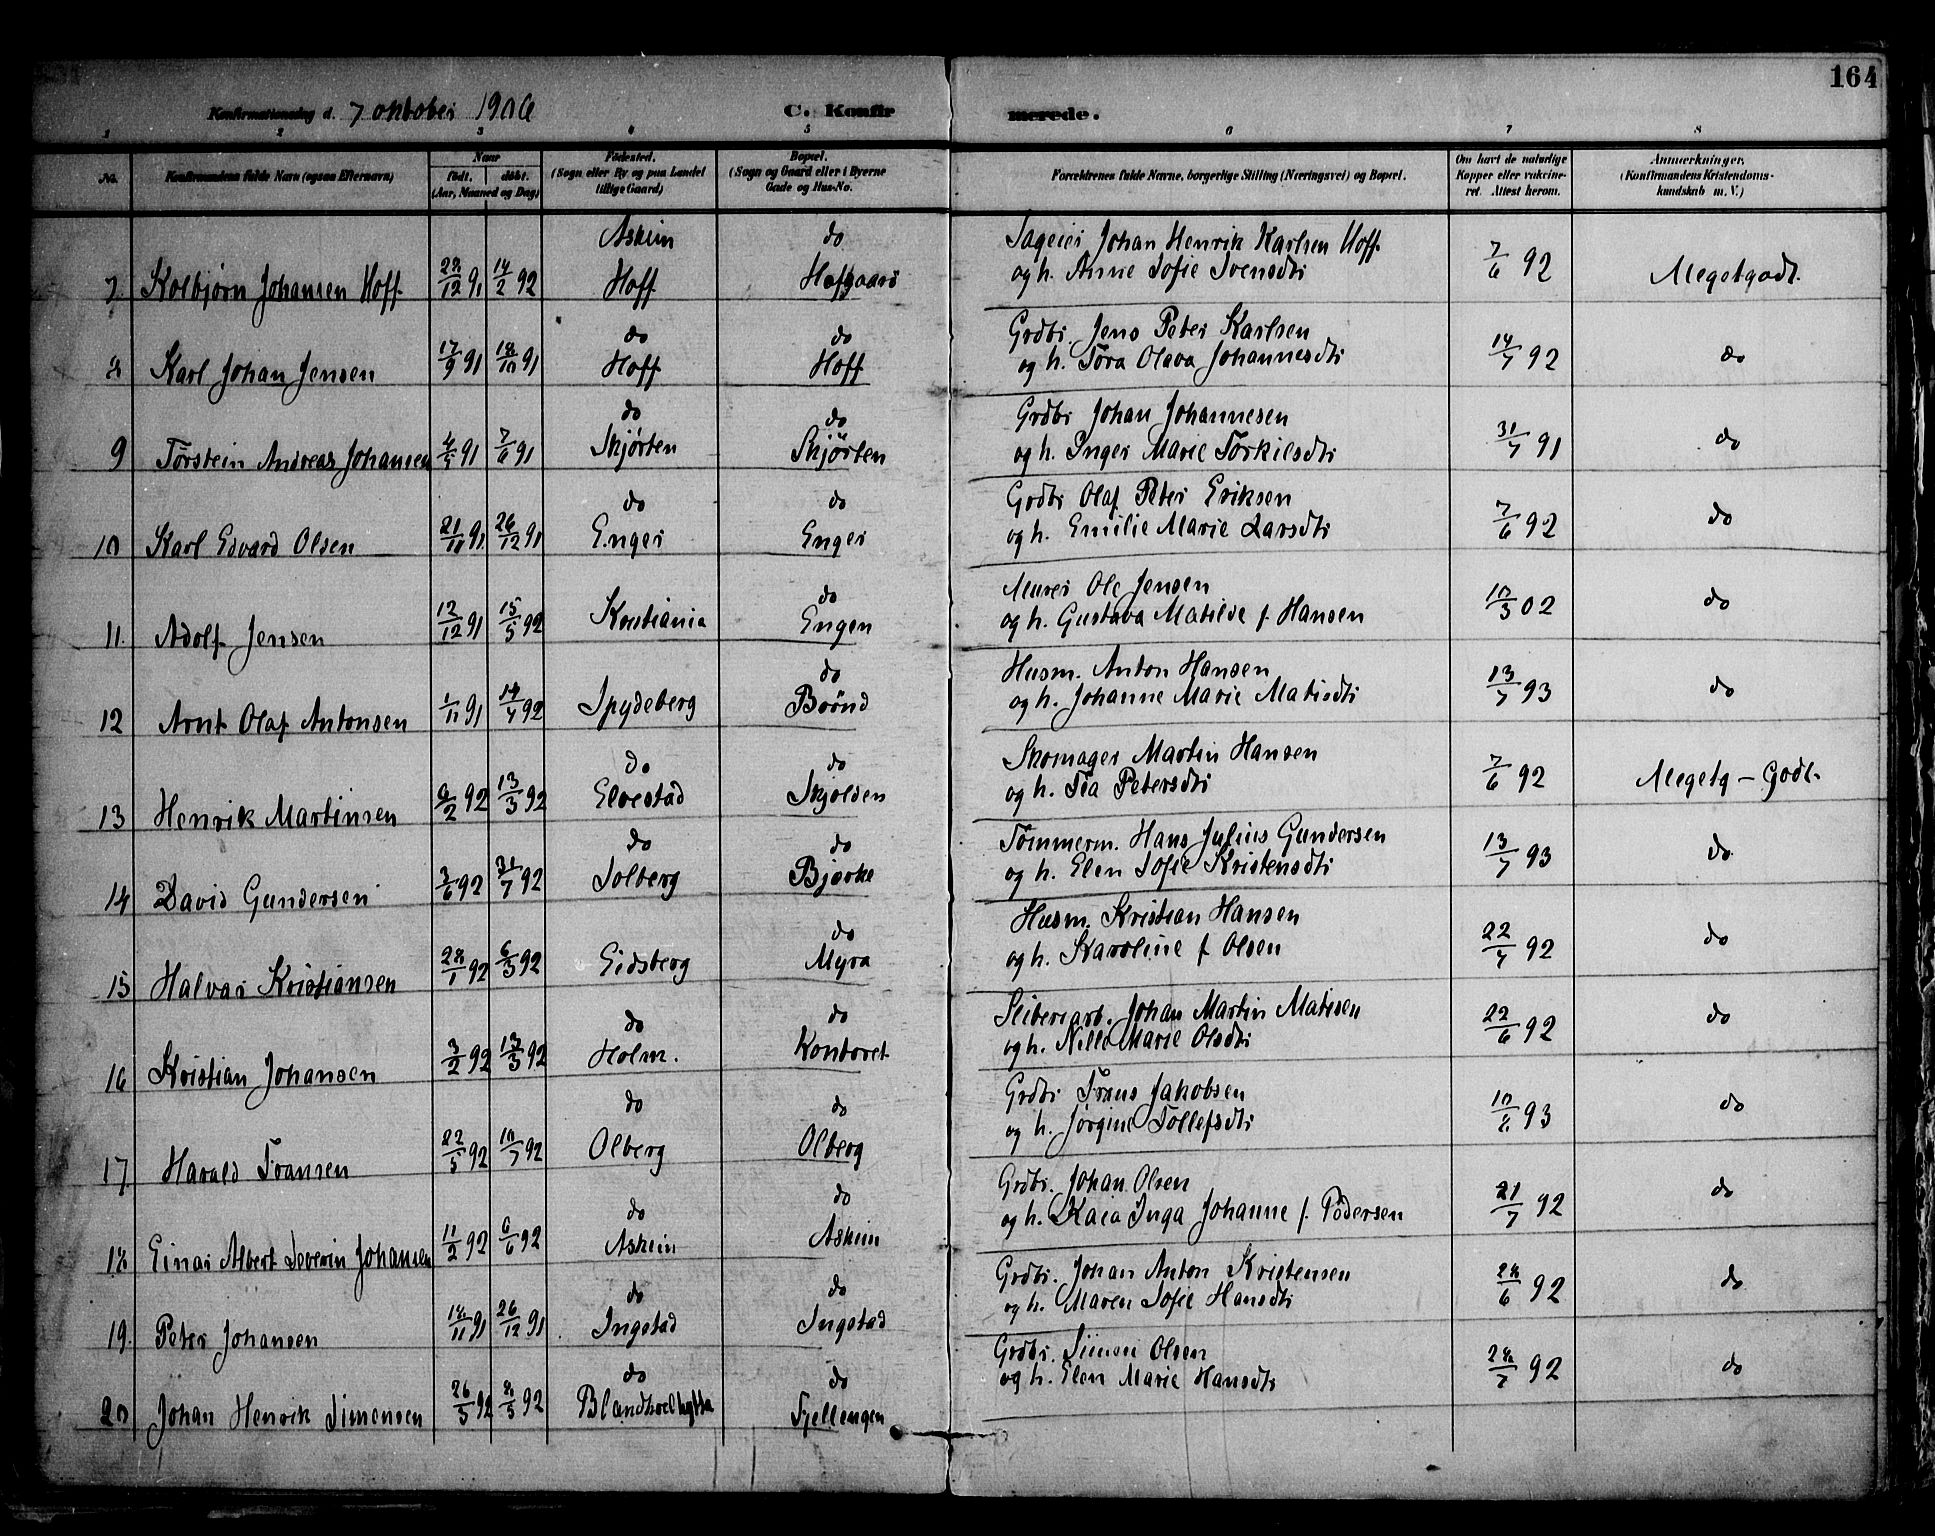 164
Konfirmationsdag d. 7 oktober 1906 C. Konfirmerede.
1 2 3 4 5 6 7 8
No. Konfirmandens fulde Navn (ogsaa Efternavn) Naar født. døbt. (Aar, Maaned og Dag) Fødested. (Sogn eller By og paa Landet tillige Gaard) Bopæl. (Sogn og Gaard eller i Byerne Gade og Hus-No. Forældrenes fulde Navne, borgerlige Stilling (Næringsvei) og Bopæl. Om havt de naturlige Kopper eller vakcineret. Attest herom. Anmærkninger. (Konfirmandens Kristendomskundskab m. V.)
Askim do Sageier Johan Henrik Karlsen Hoff
7. Kolbjørn Johansen Hoff 28/12 91 14/2 92 Hoff Hofgaard og h. Anne Sofie Svensdtr 7/6 92 Megetgodt.
do do Grdbr. Jens Peter Karlsen
8 Karl Johan Jensen 17/9 91 18/10 91 Hoff Hoff og h. Tora Olava Johannesdtr 14/7 92 do
do do Grdbr Johan Johannesen
9 Torstein Andreas Johansen 4/5 91 7/6 91 Skjørten Skjørten og h. Inger Marie Torkilsdtr 31/7 91 do
do do Grdbr Olaf Peter Eriksen
10 Karl Edvard Olsen 21/11 91 26/12 91 Enger Enger og h. Emilie Marie Larsdtr 7/6 92 do
do Murer Ole Jensen
11. Adolf Jensen 12/12 91 15/5 92 Kristiania Engen og h. Gustava Matilde f. Hansen 10/3 02 do
do Husm. Anton Hansen
12 Arnt Olaf Antonsen 1/11 91 14/4 92 Spydeberg Brønd og h. Johanne Marie Matisdtr 13/7 93 do
do do Skomager Martin Hansen
13 Henrik Martinsen 6/2 92 13/3 92 Elvestad Skjolden og h. Tea Petersdtr 7/6 92 Megetg - Godt.
do do Tømmerm. Hans Julius Gundersen
14 David Gundersen 3/6 92 31/7 92 Solberg Bjørke og h. Elen Sofie Kristensdtr 13/7 93 do
do Husm. Kristian Hansen
15 Halvar Kristiansen 28/1 92 6/3 92 Eidsberg Myra og h. Karoline f Olsen 22/7 92 do
do do Sliberiarb. Johan Martin Matisen
16 Kristian Johansen 3/2 92 13/3 92 Holm. Kontoret og h. Nille Marie Olsdtr 22/6 92 do
do do Grdbr Frans Jakobsen
17. Harald Fransen 22/5 92 10/7 92 Olberg Olberg og h. Jørgine Tollefsdtr 10/6 93 do
do do Grdbr. Johan Olsen
18. Einar Albert Severin Johansen 11/2 92 6/6 92 Askim Askim og h. Kaia Inga Johanne f. Pedersen 21/7 92 do
do do Grdbr. Johan Anton Kristensen
19. Peter Johansen 18/11 91 26/12 91 Ingstad Ingstad og h. Maren Sofie Hansdtr 28/6 92 do
do do Grdbr. Simen Olsen
20 Johan Henrik Simensen 26/3 92 8/5 92 Fjellengen og h. Elen Marie Hansdtr 28/7 92 do